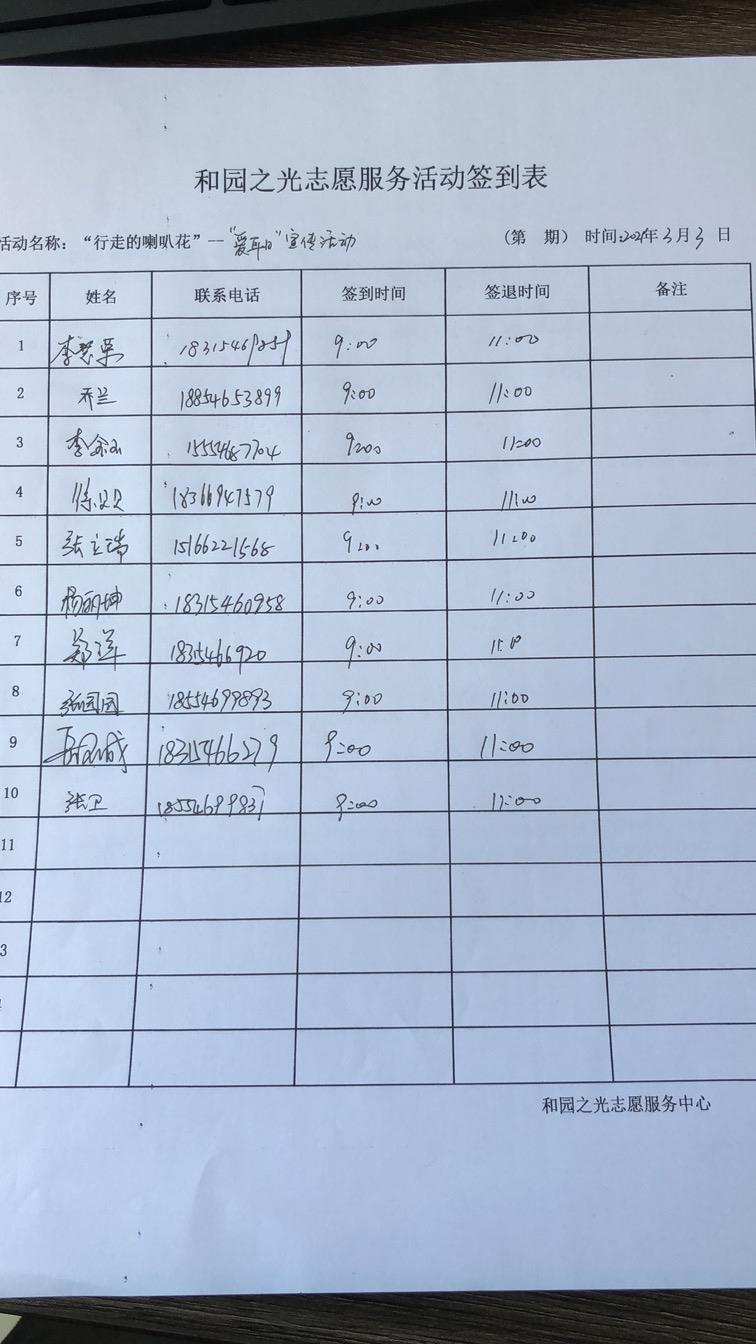 和园之光志愿服务活动签到表
活动名称：“行走的喇叭花”--“爱耳日”宣传活动 （第 期） 时间:2021年3月3日
序号 姓名 联系电话 签到时间 签退时间 备注
1 9:00 11:00
2 乔兰 18854653899 9:00 11:00
3 15554687704 9:00 11:00
4 徐贝贝 18366947579 9:00 11:00
5 张立瑞 15166221568 9:00 11:00
6 杨丽坤 18315460958 9:00 11:00
7 郑洋 1835466920 9:00 11:00
8 张园园 18554699893 9:00 11:00
9 18315466279 9:00 11:00
10 张卫 9:00 11:00
11
12
3
和园之光志愿服务中心